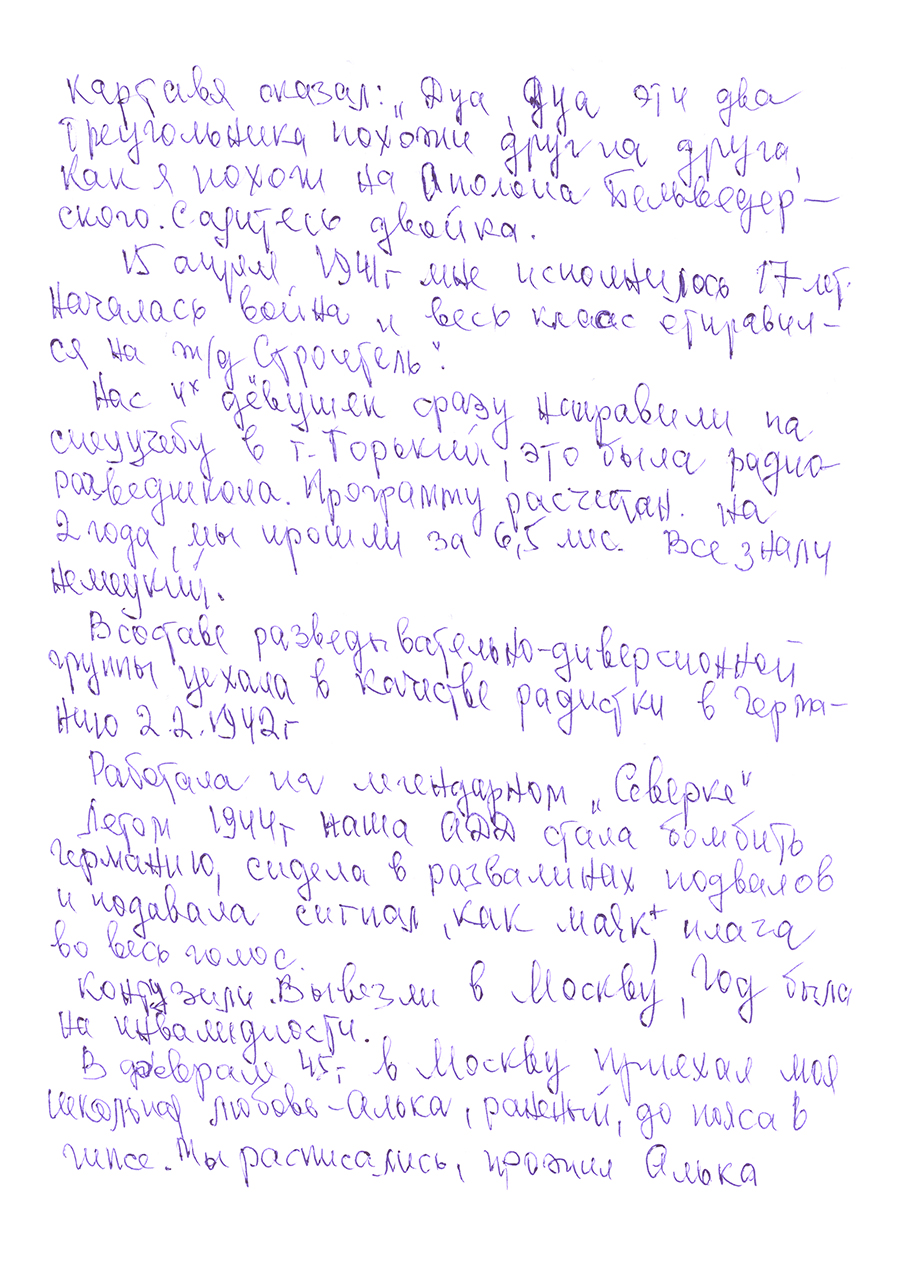 картавя сказал: „Дуа, Дуа, эти два
треугольника похожи друг на друга,
как я похож на Аполона Бельведер-
ского. Садитесь двойка.
15 апреля 1941г мне исполнилось 17 лет.
Началась война и весь класс отправил-
ся на ж/д „Строитель".
Нас 4х девушек сразу направили на
спецучебу в г. Горький, это была радио-
разведшкола. Программу расчитан. на
2 года, мы прошли за 6,5 мис. Все знали
немецкий.
В составе разведывательно-диверсионной
группы уехала в качестве радистки в Герма-
нию 2.2.1942г
Работала на легендарном „Северке"
Летом 1944г наша АДД стала бомбить
Германию, сидела в развалинах подвалов
и подавала сигнал, как маяк, плача
во весь голос.
Контузили. Вывезли в Москву, год была
на инвалидности.
В феврале 45г. в Москву приехал моя
школьная любовь-Алька, раненый, до пояса в
гипсе. Мы расписались, прожил Алька